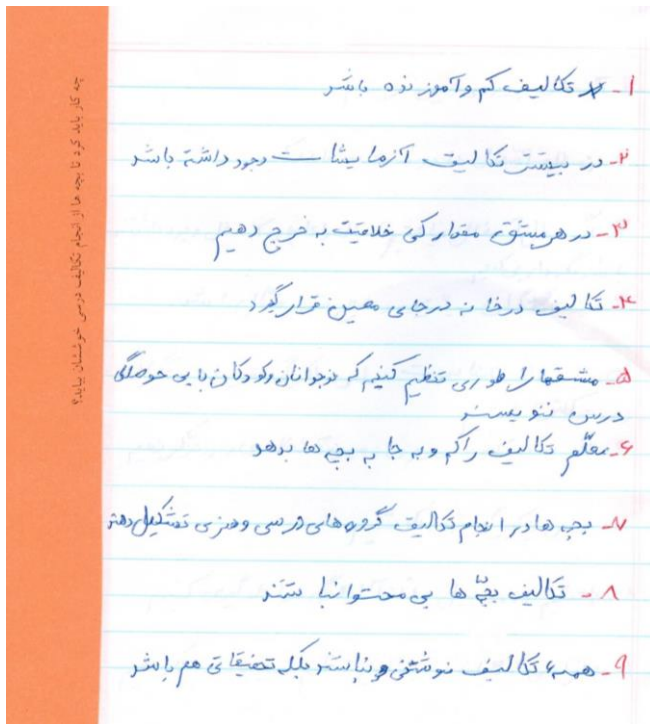 چه کار باید کرد تا بچه ها از انجام تکالیف درسی خوششان بیاید؟
۱- تکالیف کم و آموزنده باشد
۲- در بیشتر تکالیف آزمایشات وجود داشته باشد
۳- در هر مشق مقدار کی خلاقیت به خرج دهیم
۴- تکالیف در خانه در جای معین قرار گیرد
۵- مشقها را طوری تنظیم کنیم که نوجوانان و کودکان با بی حوصلگی
درس ننویسند
۶- معلّم تکالیف را کم و به جا به بچه ها بدهد
۷- بچه ها در انجام تکالیف گروه های درسی و هنری تشکیل دهند
۸- تکالیف بچّه ها بی محتوا نباشند
۹- همهء تکالیف نوشتنی نباشند بلکه تحقیقاتی هم باشد